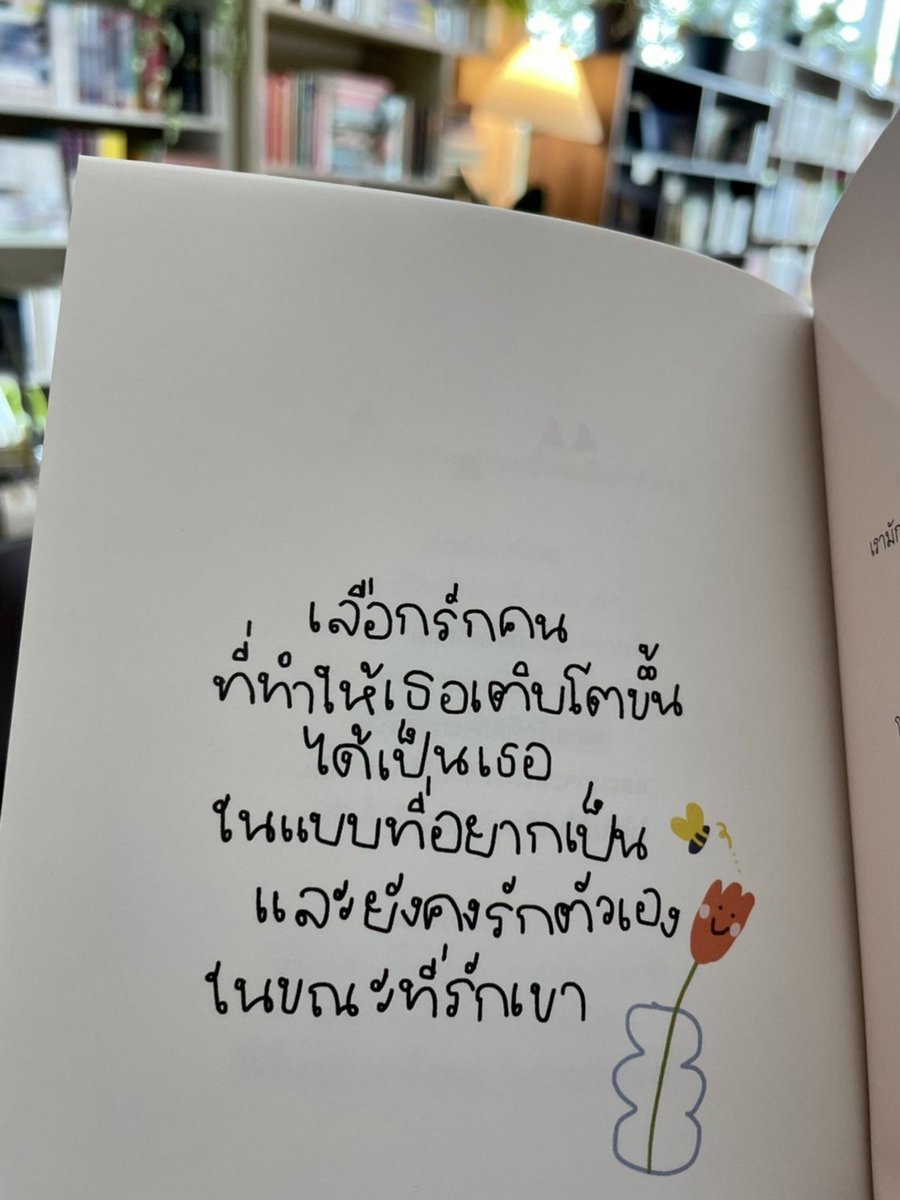 เลือกรักคน
ที่ทำให้เธอเติบโตขึ้น
ได้เป็นเธอ
ในแบบที่อยากเป็น
และยังคงรักตัวเอง
ในขณะที่รักเขา
เรามัก